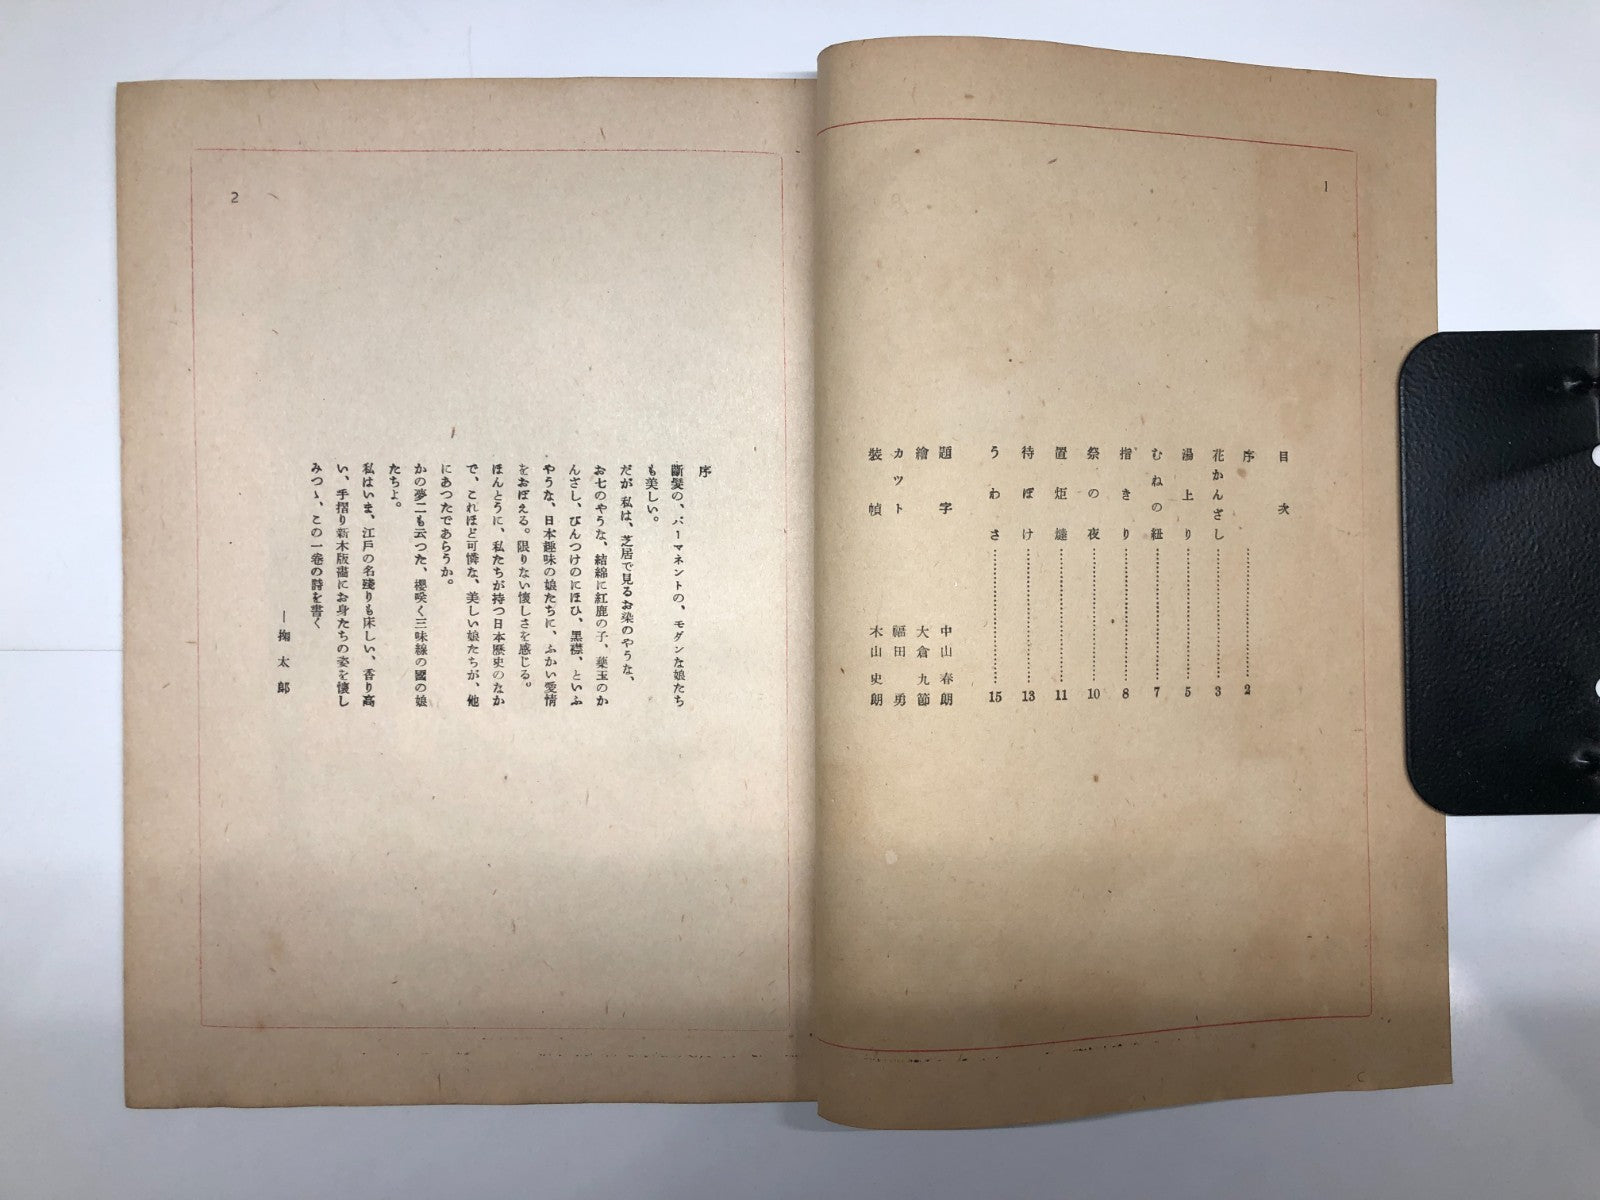 1
目次
序……………………2
花かんざし……………………3
湯上り……………………5
むねの紐……………………7
指きり……………………8
祭の夜……………………10
置炬燵……………………11
待ぼけ……………………13
うわさ……………………15
題字 中山春朗
繪 大倉九節
カツト 福田勇
裝幀 木山史朗
2
序
斷髮の、パーマネントの、モダンな娘たち
も美しい。
だが 私は、芝居で見るお染のやうな、
お七のやうな、結綿に紅鹿の子、藥玉のか
んざし、びんつけのにほひ、黑襟、といふ
やうな、日本趣味の娘たちに、ふかい愛情
をおぼえる。限りない懷しさを感じる。
ほんとうに、私たちが持つ日本歷史のなか
で、これほど可憐な、美しい娘たちが、他
にあつたであらうか。
かの夢二も云つた、櫻咲く三味線の國の娘
たちよ。
私はいま、江戸の名殘りも床しい、香り高
い、手摺り新木版畫にお身たちの姿を懷し
みつゝ、この一卷の詩を書く
—掬太郎